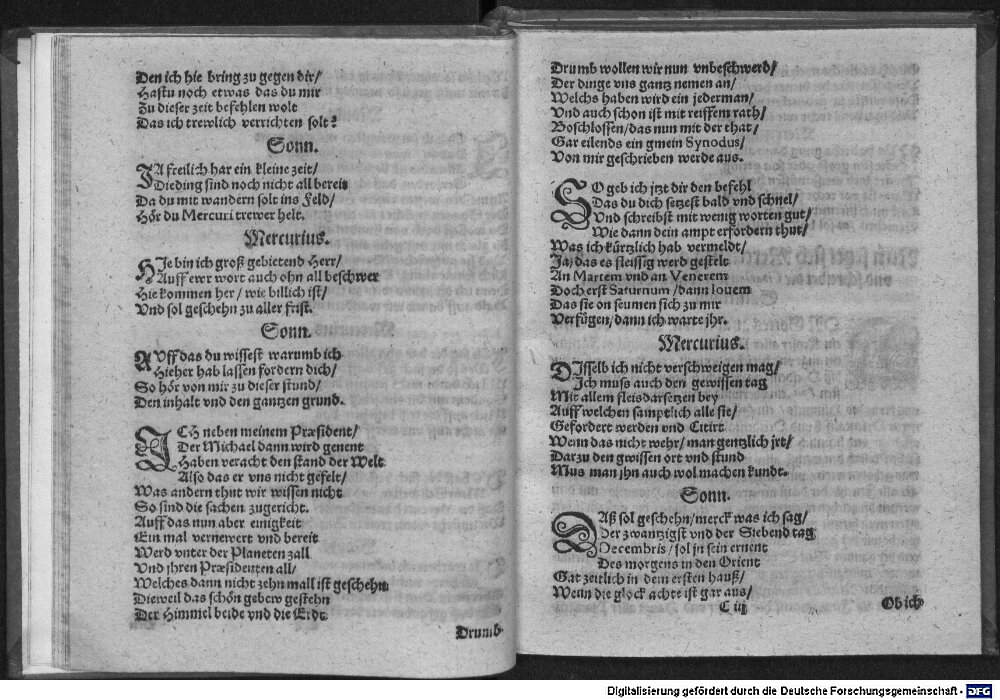 Den ich hie bring zu gegen dir/
Hastu noch etwas das du mir
Zu dieser zeit befehlen wolt
Das ich trewlich verrichten solt?
Sonn.
JA freilich har ein kleine zeit/
Die ding sind noch nicht all bereit
Da du mit wandern solt ins Feld/
Hör du Mercuri trewer helt.
Mercurius.
HIe bin ich groß gebietend Herr/
Auff ewr wort auch ohn all beschwer
Hie kommen her/ wie billich ist/
Vnd sol geschehn zu aller frist.
Sonn.
AVff das du wissest warumb ich
Hieher hab lassen fordern dich/
So hör von mir zu dieser stund/
Den inhalt vnd den gantzen grund.
ICH neben meinem Præsident/
Der Michael dann wird genent
Haben veracht den stand der Welt
Also das er vns nicht gefelt/
Was andern thut wir wissen nicht
So sind die sachen zugericht.
Auff das nun aber einigkeit
Ein mal vernewert vnd bereit
Werd vnter der Planeten zall
Vnd jhren Præsidenten all/
Welches dann nicht zehn mall ist geschehn
Dieweil das schön gebew gestehn
Der Himmel beide vnd die Erdt
Drumb
Drumb wollen wir nun vnbeschwerd/
Der dinge vns gantz nemen an/
Welchs haben wird ein jederman/
Vnd auch schon ist mit reiffem rath/
Boschlossen/ das nun mit der that/
Gar eilends ein gmein Synodus/
Von mir geschrieben werde aus.
SO geb ich jtzt dir den befehl
Das du dich setzest bald vnd schnel/
Vnd schreibst mit wenig worten gut/
Wie dann dein ampt erfordern thut/
Was ich kürtzlich hab vermeldt/
Ja/ das es fleissig werd gestelt
An Martem vnd an Venerem
Doch erst Saturnum/ dann Iouem
Das sie on seumen sich zu mir
Verfügen/ dann ich warte jhr.
Mercurius.
DIsselb ich nicht verschweigen mag/
Ich muso auch den gewissen tag
Mit allem fleis darsetzen bey
Auff welchen samptlich alle sie/
Gefordert werden vnd Citirt
Wenn das nicht wehr/ man gentzlich jrt/
Darzu den gwissen ort vnd stund
Mus man jhn auch wol machen kundt.
Sonn.
DAß sol geschehn/ merck was ich sag/
Der zwantzigst vnd der Siebend tag
Decembris/ sol jn sein ernent
Des morgens in den Orient
Gat zeitlich in dem ersten hauß/
Wenn die glock achte ist gar aus/
C iij
Ob ich
Digitalisierung gefördert durch die Deutsche Forschungsgemeinschaft - DFG